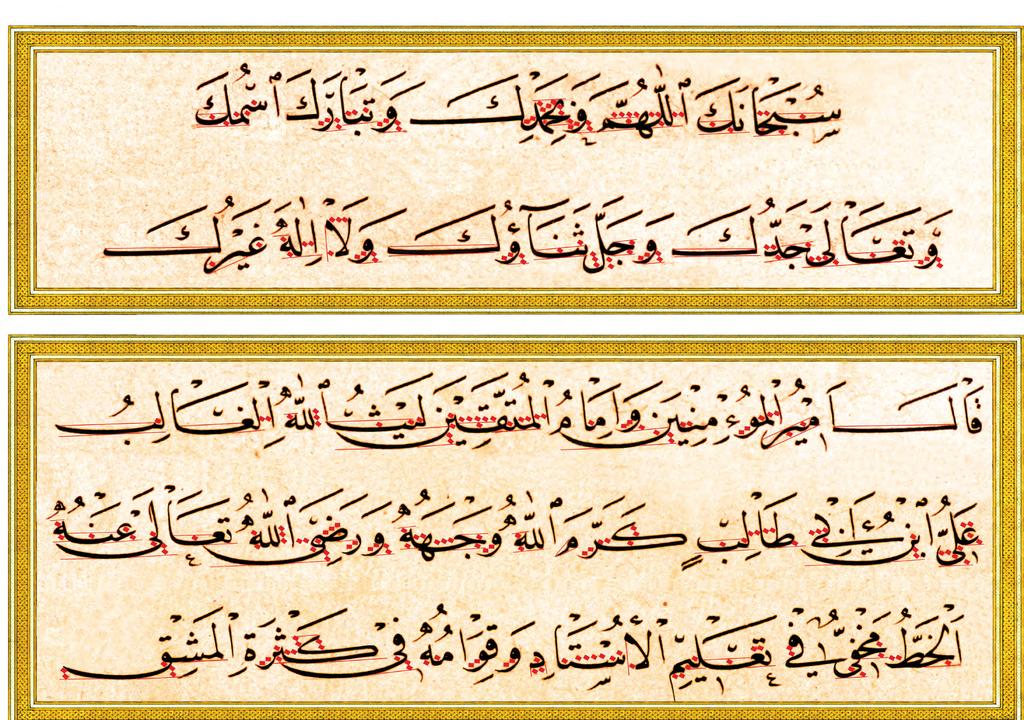 سُبْحَانَكَ ٱللّٰهُمَّ وَبِحَمْدِكَ وَتَبَارَكَ ٱسْمُكَ
وَتَعَالَىٰ جَدُّكَ وَجَلَّ ثَنَآؤُكَ وَلَا اِلٰهَ غَيْرُكَ
قَالَ اَمِيرُ الْمُوءْمِنِينَ وَاِمَامُ الْمُتَّقِينَ لَيْثُ ٱللّٰهِ الْغَالِبُ
عَلِيُّ ٱبْنُ اَبِي طَالِبٍ كَرَّمَ ٱللّٰهُ وَجْهَهُ وَرَضِيَ ٱللّٰهُ تَعَالَىٰ عَنْهُ
اَلْخَطُّ مَخْفِيٌّ فِي تَعْلِيمِ الْأُسْتَاذِ وَقِوَامُهُ فِي كَثْرَةِ الْمَشْقِ